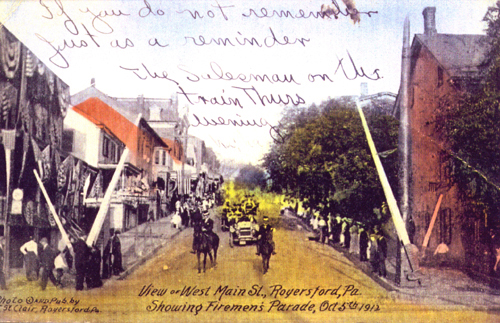 If you do not remember
Just as a reminder
The Salesman on the
train Thurs
evening
View of West Main St., Royersford, Pa.
Showing Firemen's Parade, Oct 5th 1912
Photo and Pub. by
St Clair, Royersford, Pa.